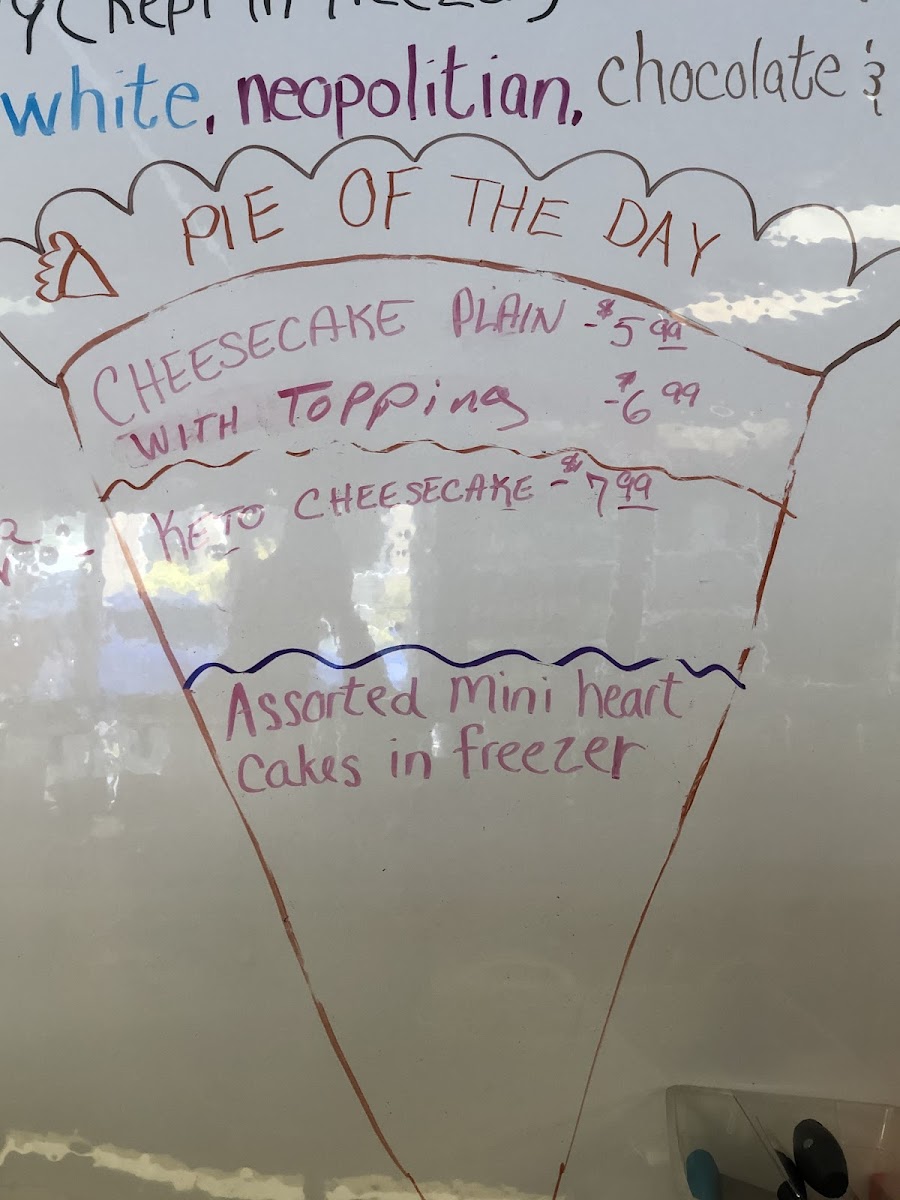 (kept in freezer)
white, neopolitian, chocolate &
PIE OF THE DAY
CHEESECAKE PLAIN - $5.99
WITH TOPPing - $6.99
KETO CHEESECAKE - $7.99
Assorted mini heart
cakes in freezer